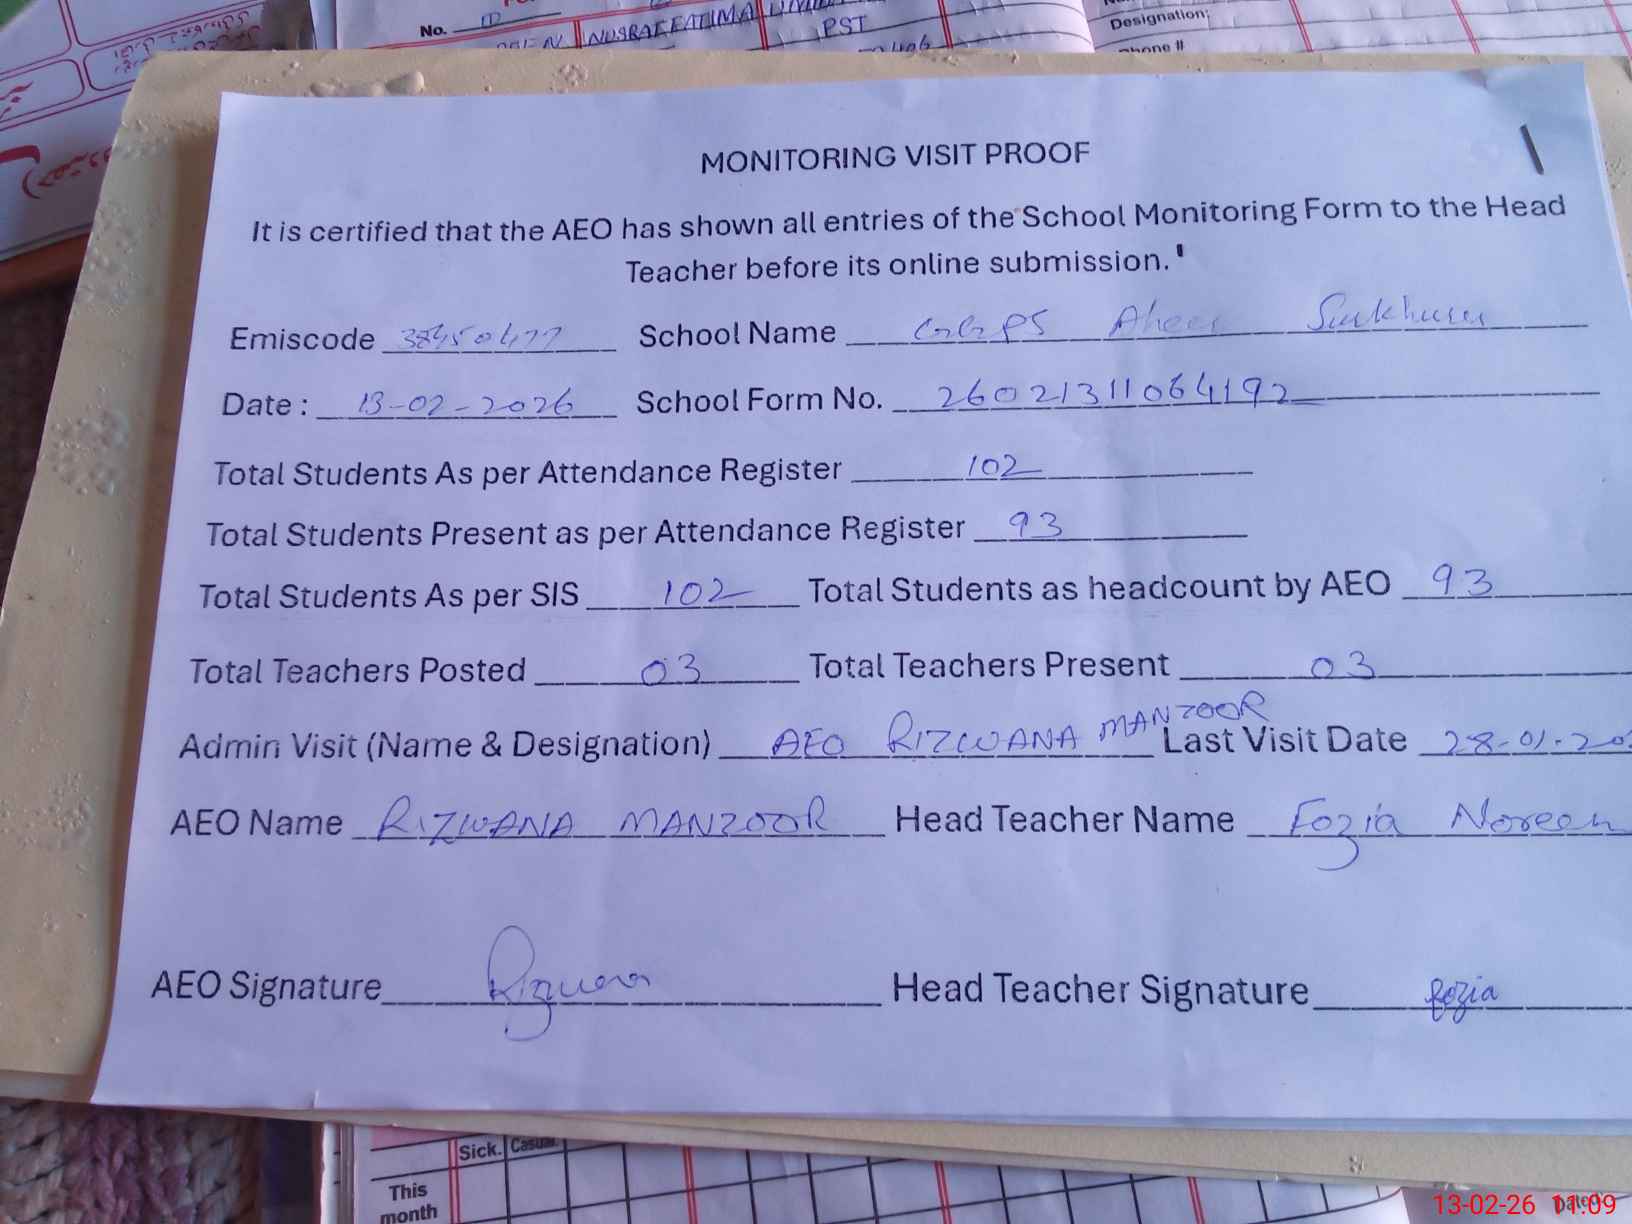 No.
NUSRAT FATIMA
PST
Designation:
Phone #
MONITORING VISIT PROOF
It is certified that the AEO has shown all entries of the School Monitoring Form to the Head
Teacher before its online submission.
Emiscode 38450477 School Name GGPS Aheer Sukhuru
Date : 13-02-2026 School Form No. 26021311064192
Total Students As per Attendance Register 102
Total Students Present as per Attendance Register 93
Total Students As per SIS 102 Total Students as headcount by AEO 93
Total Teachers Posted 03 Total Teachers Present 03
Admin Visit (Name & Designation) AEO RIZWANA MANZOOR Last Visit Date 28-01-20
AEO Name RIZWANA MANZOOR Head Teacher Name Fozia Noreen
AEO Signature Rizwana Head Teacher Signature fozia
Sick. Casual
This
month
13-02-26 11:09